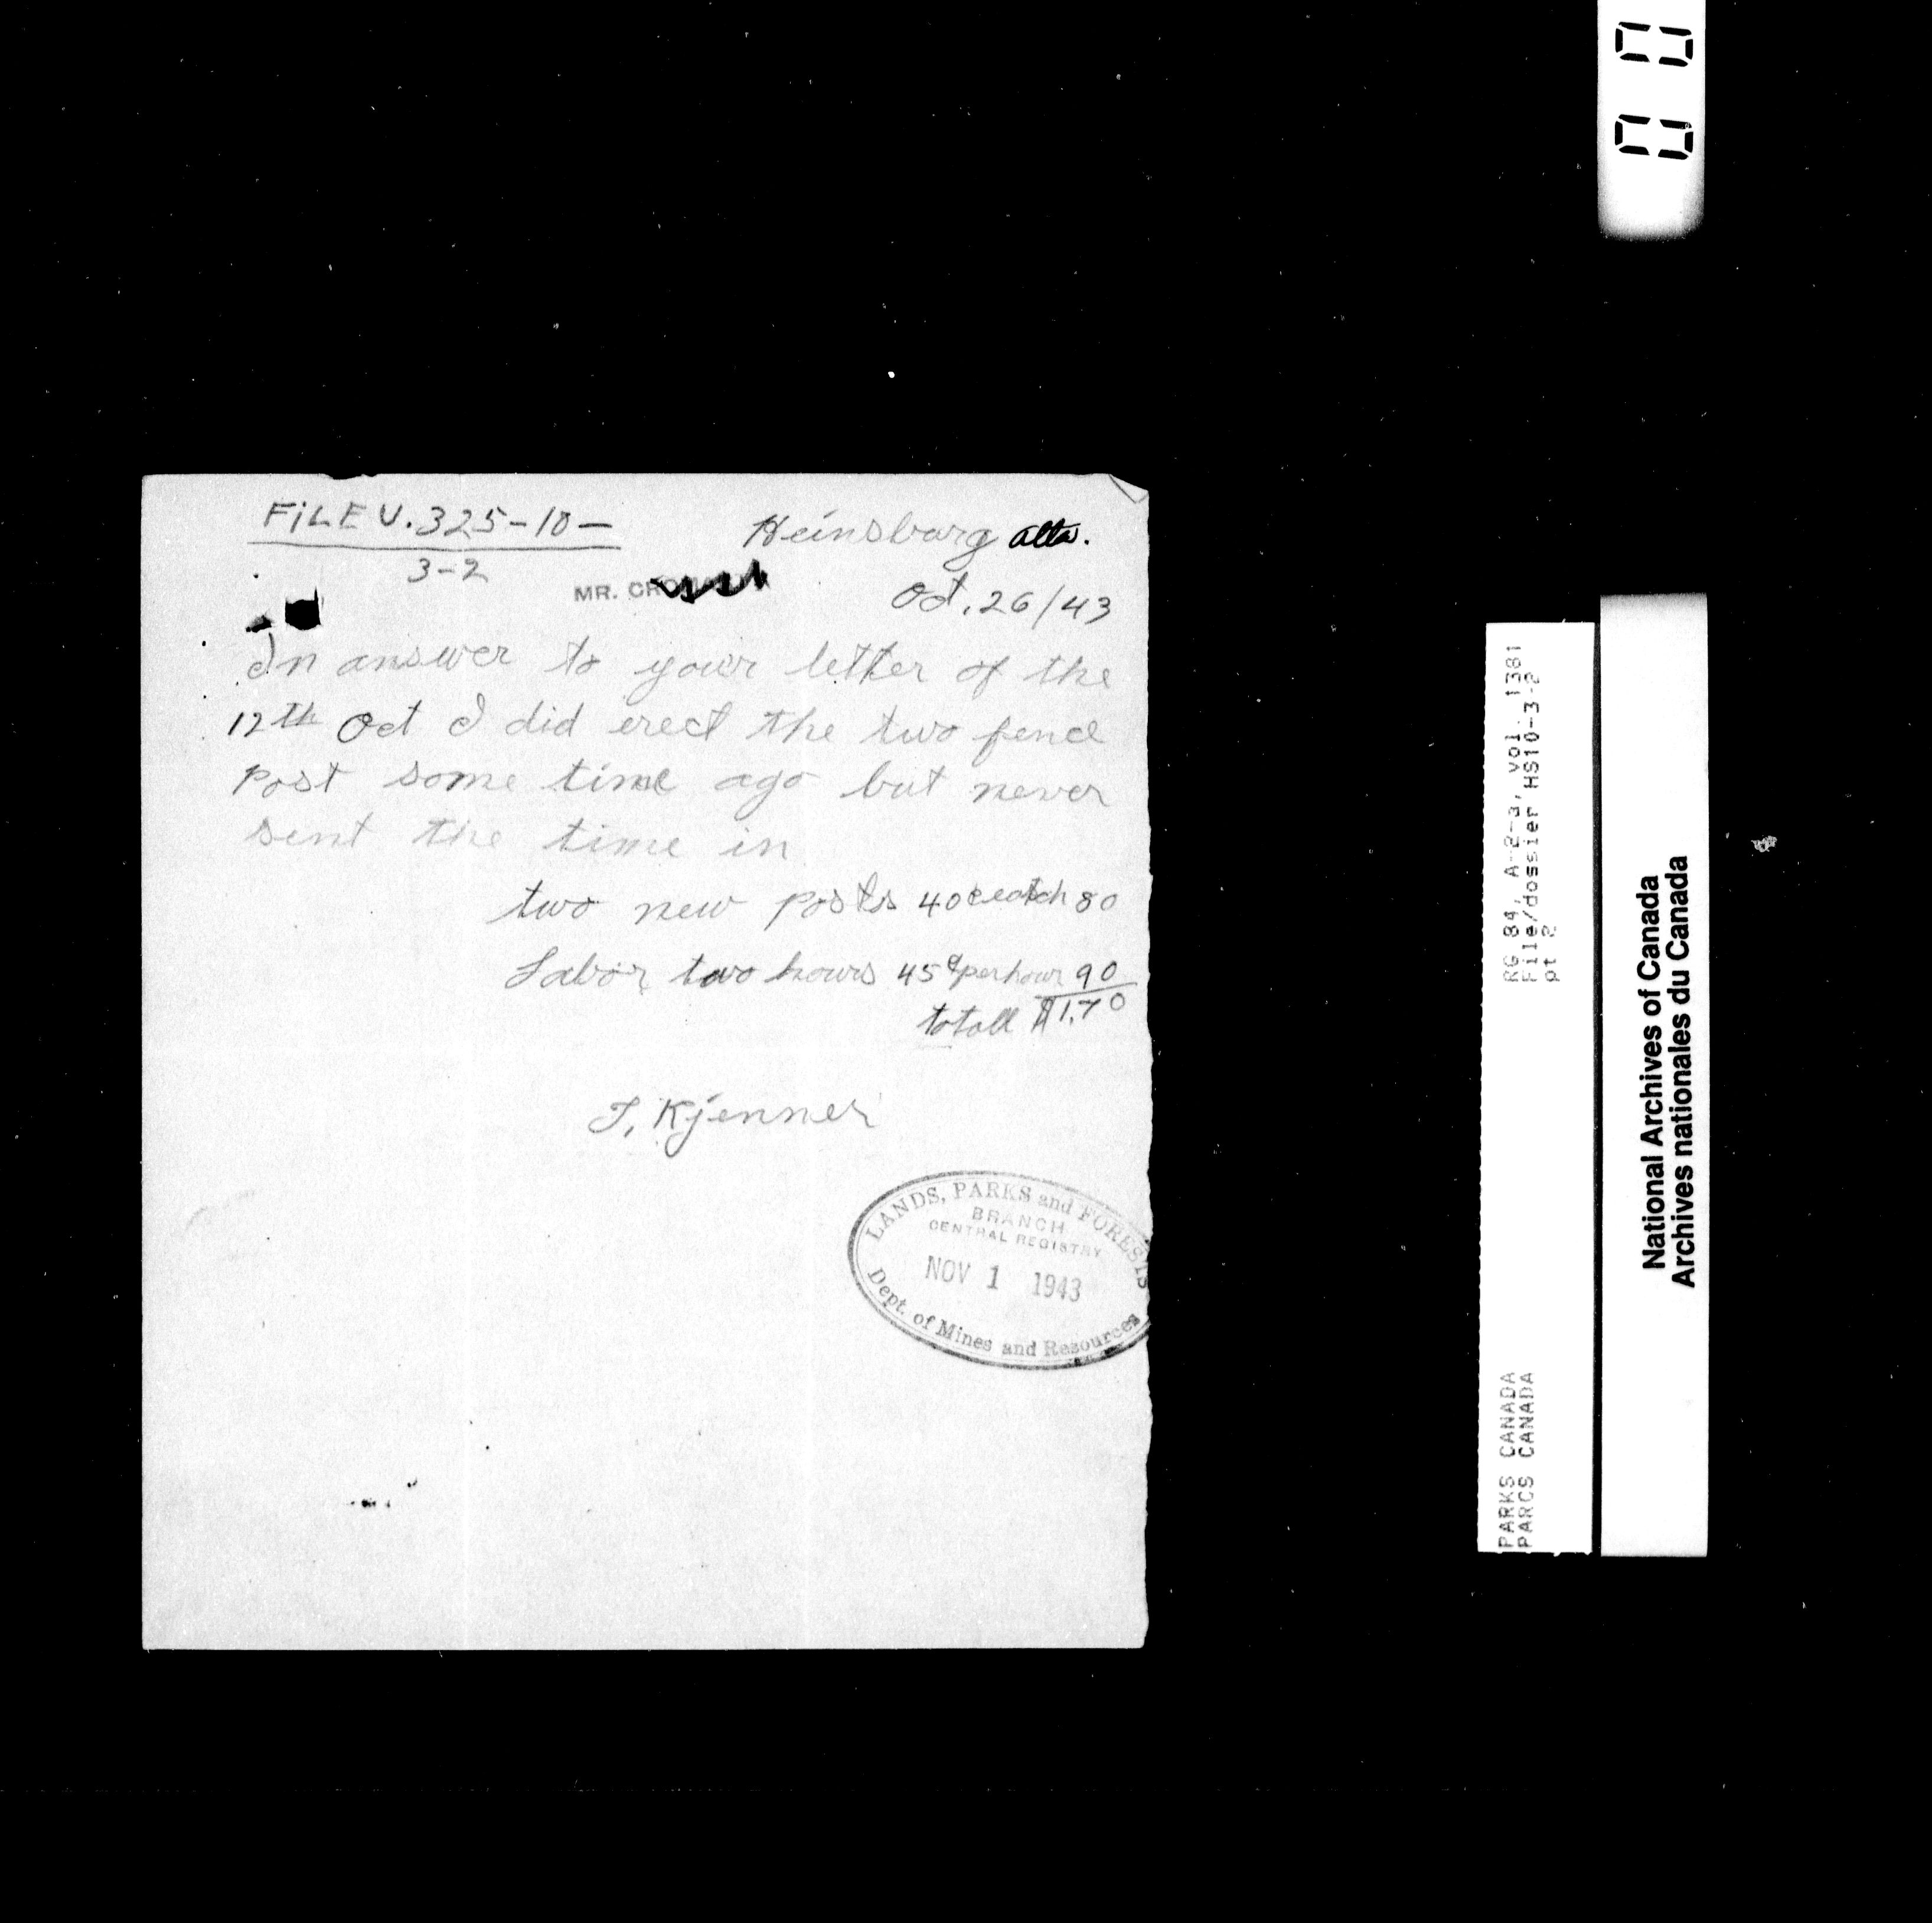 FiLE U. 325-10-
3-2
Heinsburg alta.
MR.
Oct. 26/43
In answer to your letter of the
12th Oct I did erect the two fence
post some time ago but never
sent the time in
two new posts 40¢ eatch 80
Labor two hours 45¢ per hour 90
totall $1.70
T. Kjenner
LANDS, PARKS and FORESTS
BRANCH
CENTRAL REGISTRY
NOV 1 1943
Dept. of Mines and Resources
RG 84, A-2-3, vol. 1381
File/dossier HS10-3-2
pt 2
PARKS CANADA
PARCS CANADA
National Archives of Canada
Archives nationales du Canada